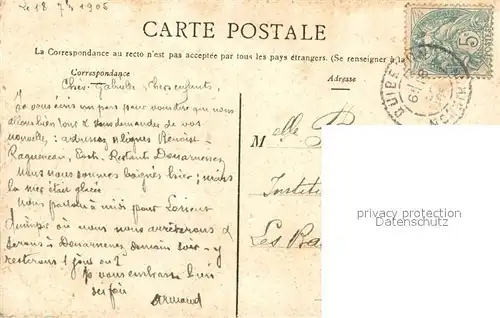 Le 18 7bre 1906
CARTE POSTALE
La Correspondance au recto n'est pas acceptée par tous les pays étrangers. (Se renseigner à la
Correspondance
Adresse
5
QUIBE
Cher Gabrielle, chers enfants,
Je vous écris un peu pour vous dire que nous
allons bien tous & vous demandes de vos
nouvelles : adressez lignes Benoist-
Ragueneau, Poste Restante Douarnenez
Nous nous sommes baignés hier ; mais
la mer était glacée
Nous partons à midi pour Lorient
Quimper où nous nous arrêterons &
serons à Douarnenez demain soir - y
resterons 1 jour ou 2
Je vous embrasse
des fois
Armand
M elle
Institu
Les
property protection
www.ansichtskarten-center.de